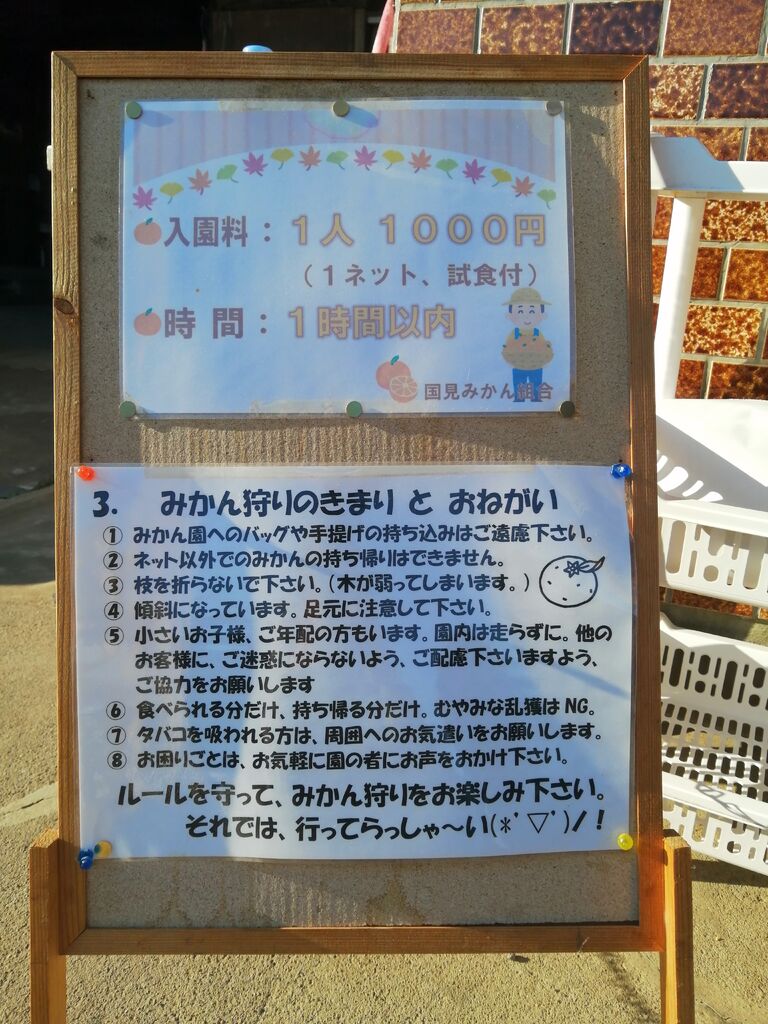 入園料：１人 １０００円
（１ネット、試食付）
時 間：１時間以内
国見みかん組合
3. みかん狩りのきまり と おねがい
① みかん園へのバッグや手提げの持ち込みはご遠慮下さい。
② ネット以外でのみかんの持ち帰りはできません。
③ 枝を折らないで下さい。（木が弱ってしまいます。）
④ 傾斜になっています。足元に注意して下さい。
⑤ 小さいお子様、ご年配の方もいます。園内は走らずに。他の
お客様に、ご迷惑にならないよう、ご配慮下さいますよう、
ご協力をお願いします
⑥ 食べられる分だけ、持ち帰る分だけ。むやみな乱獲は NG。
⑦ タバコを吸われる方は、周囲へのお気遣いをお願いします。
⑧ お困りごとは、お気軽に園の者にお声をおかけ下さい。
ルールを守って、みかん狩りをお楽しみ下さい。
それでは、行ってらっしゃ～い(*'▽')ﾉ！